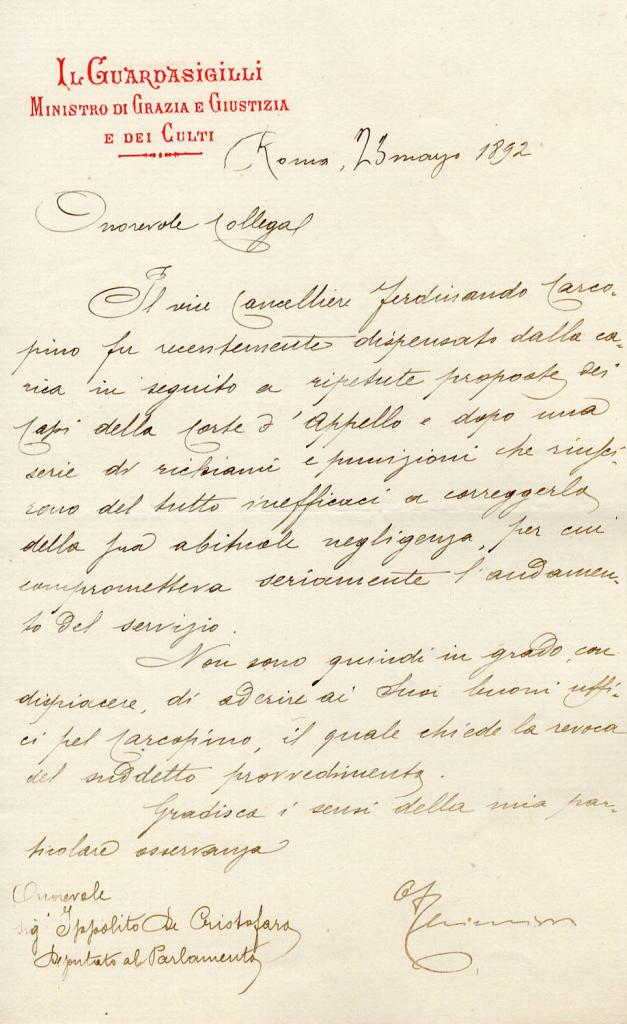 IL GUARDASIGILLI
MINISTRO DI GRAZIA E GIUSTIZIA
E DEI CULTI
Roma, 23 marzo 1892
Onorevole Collega
Il vice Cancelliere Ferdinando Carco-
pino fu recentemente dispensato dalla ca-
rica in seguito a ripetute proposte dei
Capi della Corte d'Appello e dopo una
serie di richiami e punizioni che riusci-
rono del tutto inefficaci a correggerlo
della sua abituale negligenza, per cui
comprometteva seriamente l'andamen-
to del servizio.
Non sono quindi in grado, con
dispiacere, di aderire ai Suoi buoni uffi-
ci pel Carcopino, il quale chiede la revoca
del suddetto provvedimento.
Gradisca i sensi della mia par-
ticolare osservanza
Onorevole
Sigr Ippolito De Cristofaro
Deputato al Parlamento